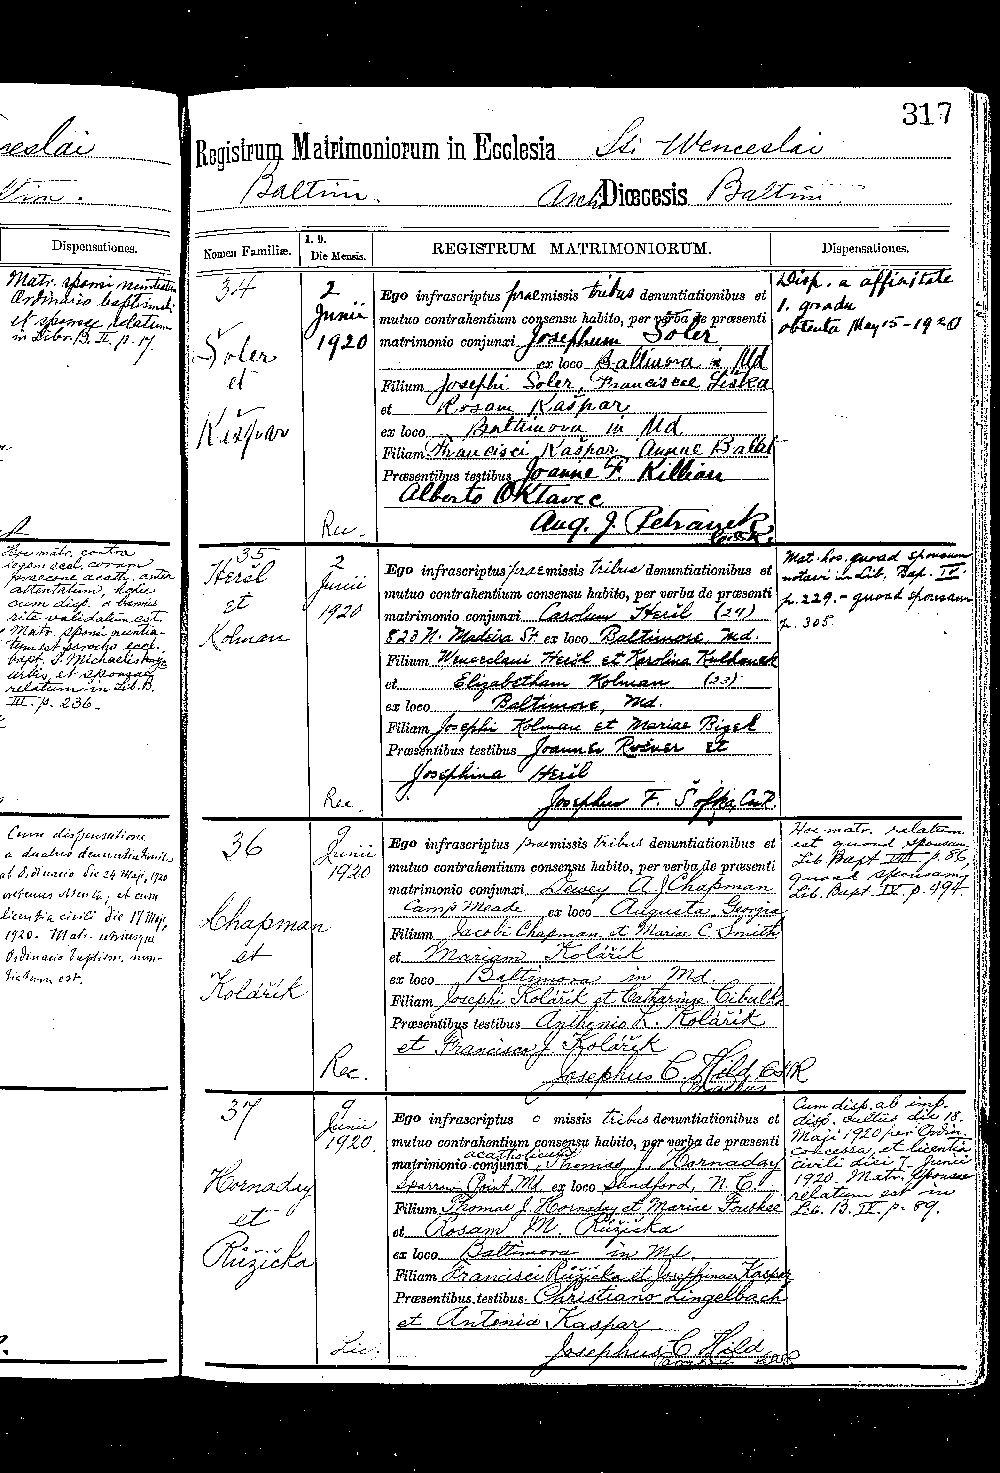 317
Registrum Matrimoniorum in Ecclesia Sti Wenceslai
Baltim. Arch Diœcesis Baltim.
Dispensationes.
Nomen Familiæ. 1. 9. Die Mensis. REGISTRUM MATRIMONIORUM. Dispensationes.
Matr. sponsi nuntiatum
Ordinario baptismi
et sponsae relatum
in Libro B. II. p. 17.
Hoc matr. contra
legem eccl. coram
praecone acath. antea
attentatum, hodie
cum disp. a bannis
rite validatum est.
Matr. sponsi nuntia-
tum est parocho eccl.
bapt. S. Michaelis
et sponsae
relatum in Lib. B.
III. p. 236.
Cum dispensatione
a duabus denuntiationib.
ab Ordinario die 24 Maji, 1920
et cum
licentia civili die 17 Maji,
1920. Matr. utriusque
Ordinario baptism. nun-
tiatum est.
34
Šoler
et
Kašpar
2
Junii
1920
Rec.
Ego infrascriptus praemissis tribus denuntiationibus et
mutuo contrahentium consensu habito, per verba de præsenti
matrimonio conjunxi Josephum Šoler
ex loco Baltimora in Md
Filium Josephi Šoler, Franciscae Liška
et Rosam Kašpar
ex loco Baltimora in Md
Filiam Francisci Kašpar, Annae
Præsentibus testibus Joanne F. Killian
Alberto Oktavec
Aug. J. Petranek
Disp. a affinitate
1. gradu
obtenta May 15-1920
35
Heršl
et
Kolman
2
Junii
1920
Rec.
Ego infrascriptus praemissis tribus denuntiationibus et
mutuo contrahentium consensu habito, per verba de præsenti
matrimonio conjunxi Carolum Heršl (24)
823 N. Madeira St ex loco Baltimore, Md.
Filium Wenceslaui Heršl et Karolina Kulhanek
et Elizabetham Kolman (23)
ex loco Baltimore, Md.
Filiam Josephi Kolman et Mariae Bizek
Præsentibus testibus Joannes et
Josephina Heršl
Josephus F. Šofka, C.ss.R.
Mat. hoc. quoad sponsum
notavi in Lib. Bap. IV.
p. 229. - quoad sponsam
p. 305
36
Chapman
et
Kolářík
2
Junii
1920
Rec.
Ego infrascriptus praemissis tribus denuntiationibus et
mutuo contrahentium consensu habito, per verba de præsenti
matrimonio conjunxi Dewey A. Chapman
Camp Meade ex loco Augusta Georgia
Filium Jacobi Chapman et Mariae C. Smith
et Mariam Kolářík
ex loco Baltimora in Md
Filiam Josephi Kolářík et Catharinae Cibulka
Præsentibus testibus Anthonio L. Kolářík
et Francisco J. Kolářík
Josephus C. Hild, CSSR
Hoc matr. relatum
est quoad sponsum
Lib. Bapt. VIII p. 86,
quoad sponsam
Lib. Bapt. IV p. 494.
37
Hornaday
et
Růžička
9
Junii
1920
Lic.
Ego infrascriptus omissis tribus denuntiationibus et
mutuo contrahentium consensu habito, per verba de præsenti
acatholicum
matrimonio conjunxi Thomas J. Hornaday
Sparrow Point, Md. ex loco Sandford, N. C.
Filium Thomae J. Hornaday et Mariae Foushee
et Rosam M. Růžička
ex loco Baltimora in Md.
Filiam Francisci Růžička et Josephinae Kaspar
Præsentibus testibus Christiano Lingelbach
et Antonia Kaspar
Josephus C. Hild
Cum disp. ab imp.
disp. cultus die 18.
Maji 1920 per Ordin.
concessa, et licentia
civili diei 7. Junii
1920. Matr. sponsae
relatum est in
Lib. B. IV. p. 89.